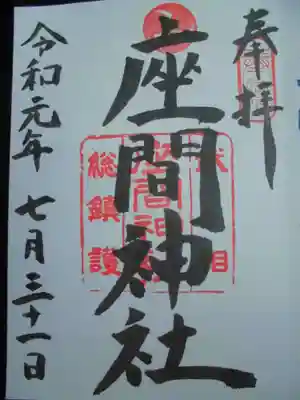 奉拝
座間神社
総鎮護
令和元年七月三十一日